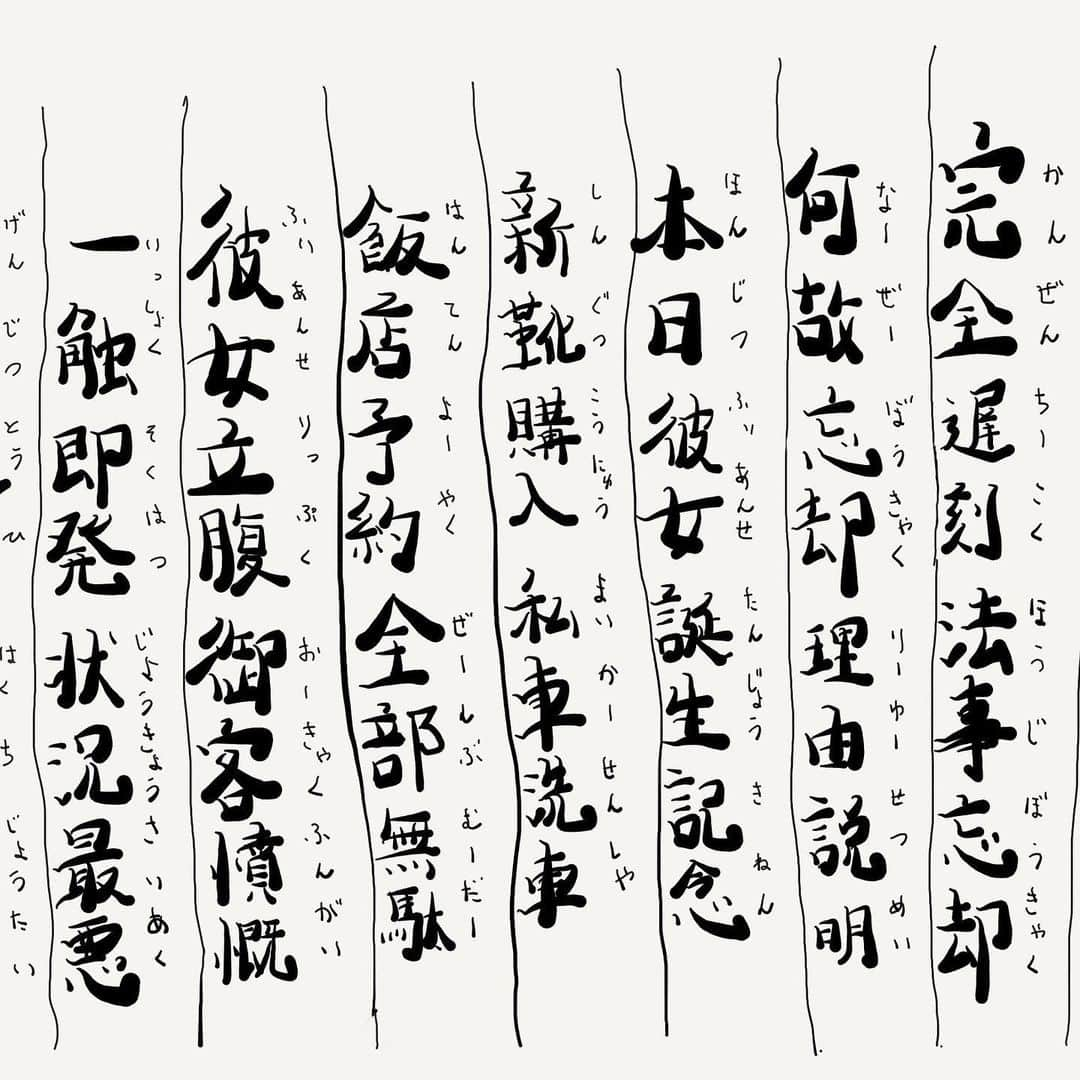 完全遅刻法事忘却
かんぜんちーこくほうじぼうきゃく
何故忘却理由説明
なーぜーぼうきゃくりーゆーせつめい
本日彼女誕生記念
ほんじつふぃあんせたんじょうきねん
新靴購入私車洗車
しんぐつこうにゅうまいかーせんしゃ
飯店予約全部無駄
はんてんよーやくぜーんぶむーだー
彼女立腹御客憤慨
ふぃあんせりっぷくおーきゃくふんがい
一触即発状況最悪
いっしょくそくはつじょうきょうさいあく
げんじつとうひはくちじょうたい